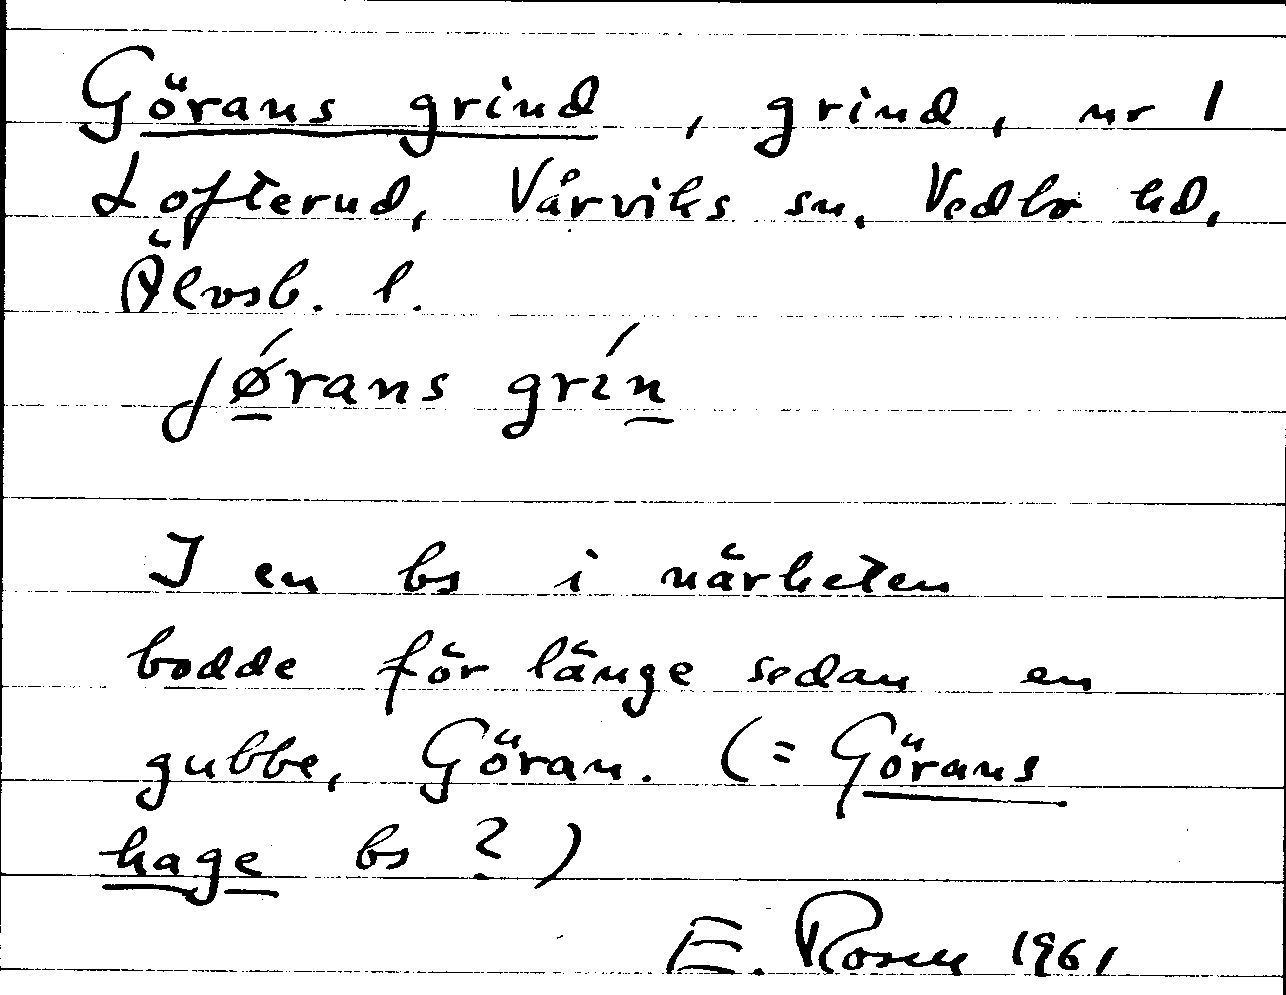 Görans grind, grind, nr 1
Lofterud, Vårviks sn, Vedbo hd,
Älvsb. l.
jǿ̲rans grín̲
I en bs i närheten
bodde för länge sedan en
gubbe, Göran. (= Görans
hage bs ?)
E. Rosen 1961